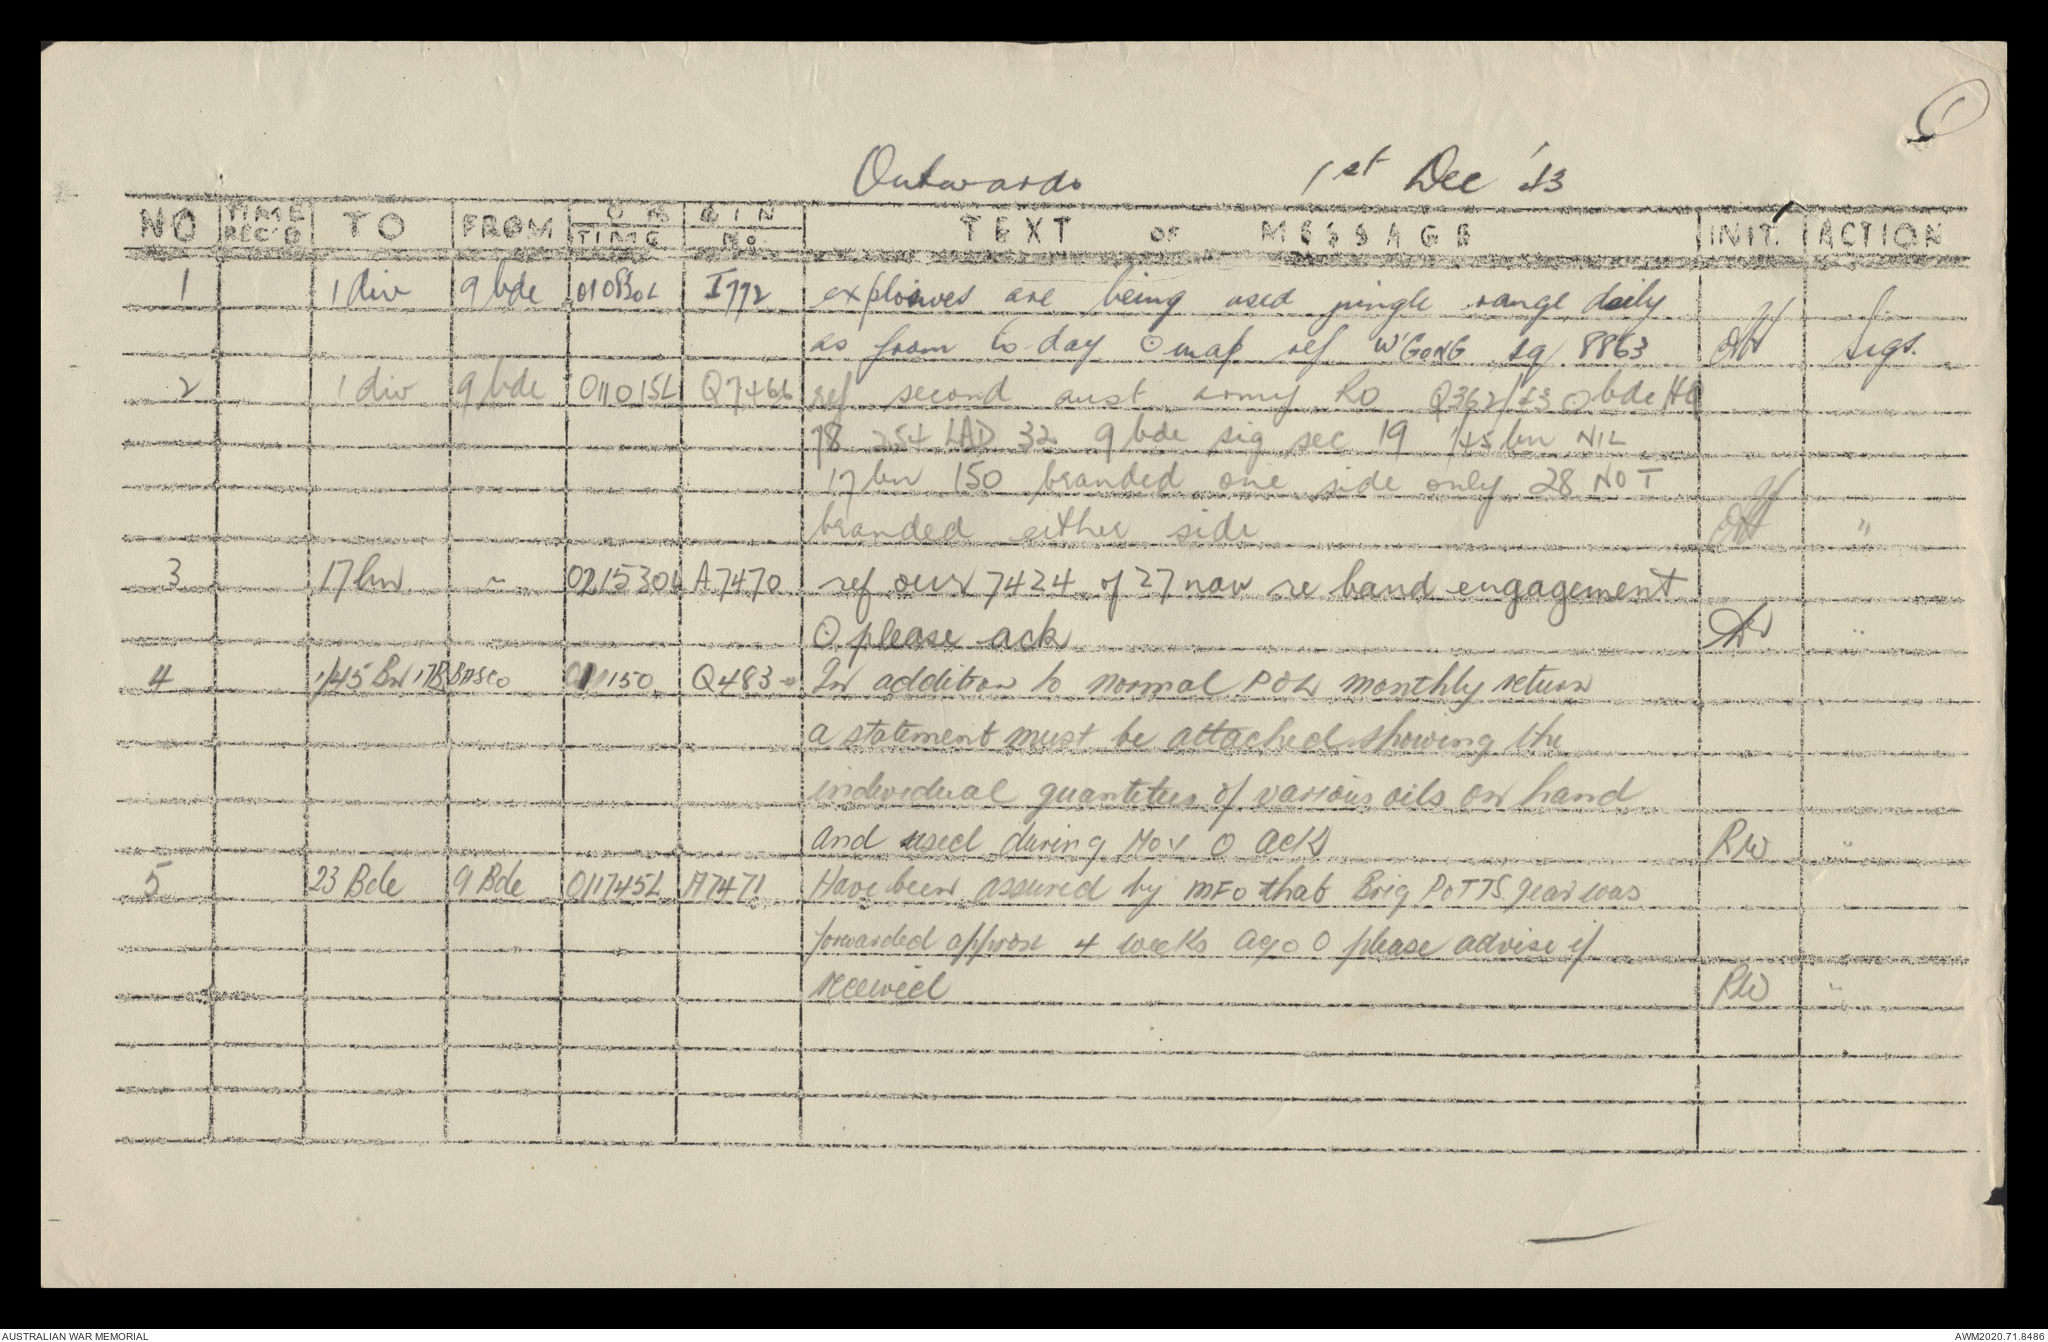 Outwards 1st Dec '43
NO TIME REC'D TO FROM TIME No. TEXT OF MESSAGE INIT. ACTION
1 1 div 9 bde 010830L I772 explosives are being used jungle range daily
as from to-day O map ref W'GONG sq 8863 Sigs.
2 1 div 9 bde 011015L Q7466 ref second aust army RO Q362/43 O bde HQ
18 254 LAD 32 9 bde sig sec 19 1/45 bn NIL
17 bn 150 branded one side only 28 NOT
branded either side "
3 17 bn " 021530L A7470 ref our 7424 of 27 nov re band engagement
O please ack "
4 1/45 Bn 17B BASCO 011150 Q483 In addition to normal POL monthly return
a statement must be attached showing the
individual quantities of various oils on hand
and used during Nov O ack RW "
5 23 Bde 9 Bde 011745L A7471 Have been assured by MFO that Brig POTTS gear was
forwarded approx 4 weeks ago O please advise if
received RW "
AUSTRALIAN WAR MEMORIAL AWM2020.71.8486